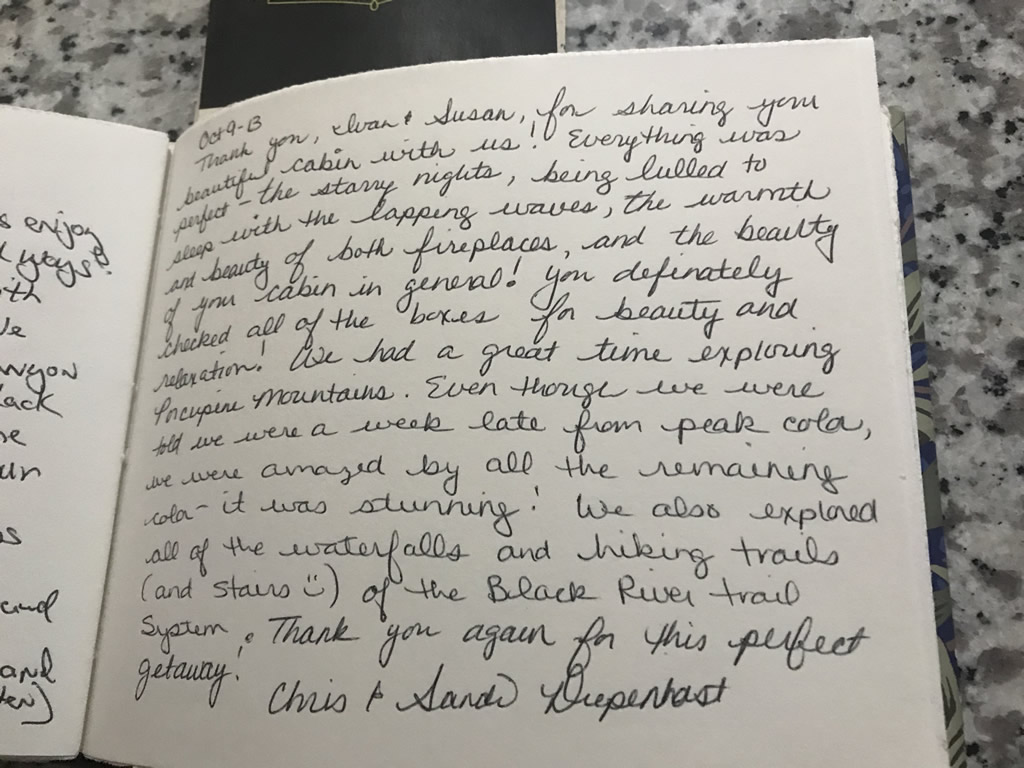 s enjoy
ith
nyon
ack
and
and
Oct 9-13
Thank you, Ivan & Susan, for sharing your
beautiful cabin with us! Everything was
perfect - the starry nights, being lulled to
sleep with the lapping waves, the warmth
and beauty of both fireplaces, and the beauty
of your cabin in general! You definately
checked all of the boxes for beauty and
relaxation! We had a great time exploring
Porcupine Mountains. Even though we were
told we were a week late from peak color,
we were amazed by all the remaining
color - it was stunning! We also explored
all of the waterfalls and hiking trails
(and stairs :) ) of the Black River trail
System. Thank you again for this perfect
getaway!
Chris & Sandi